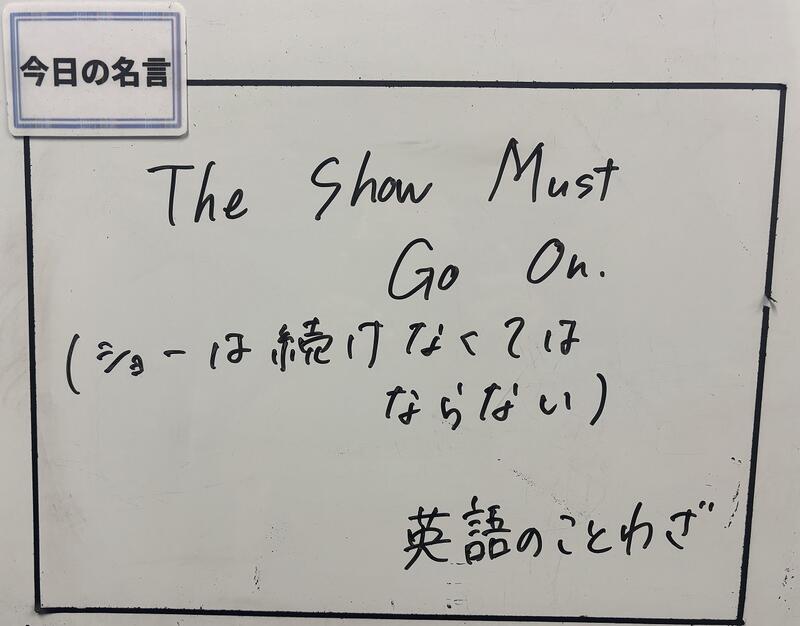 今日の名言
The Show Must
Go On.
(ショーは続けなくては
ならない)
英語のことわざ